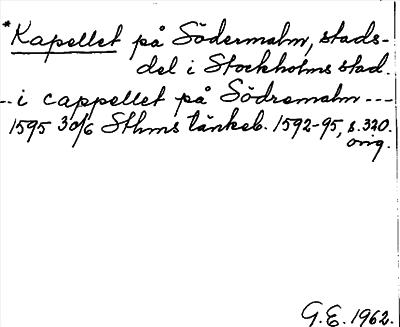 *Kapellet på Södermalm, stads-
del i Stockholms stad.
-- i cappellet på Södremalm ---
1595 30/6 Sthms tänkeb. 1592-95, s. 320.
orig.
G.E. 1962.